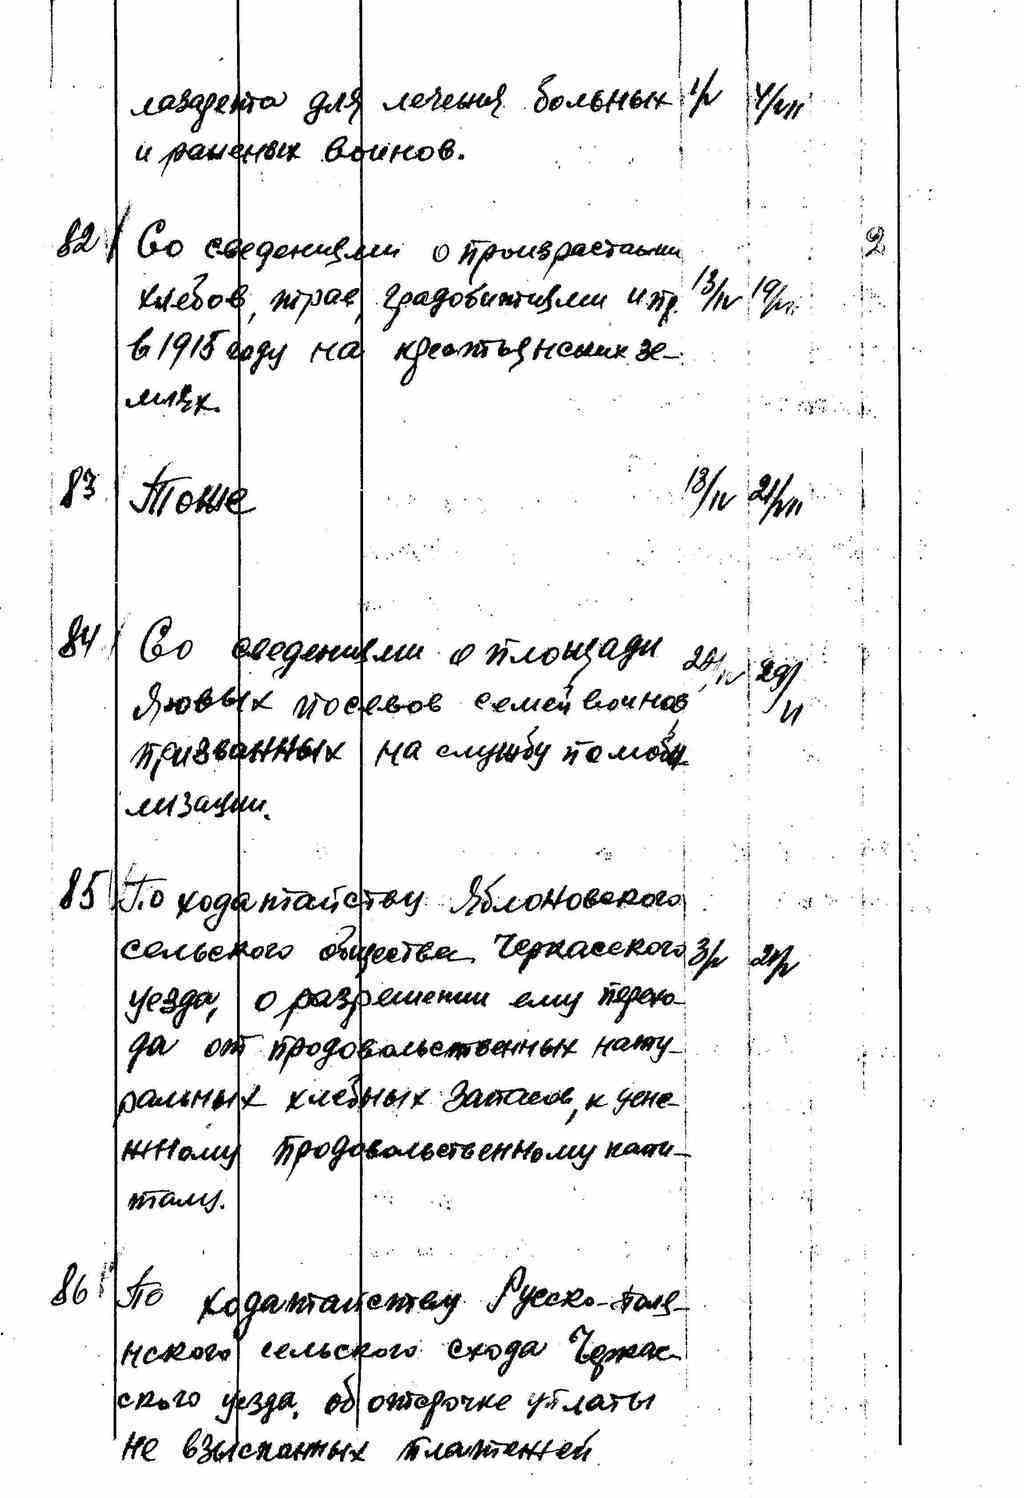 лазарета для лечения больных 1/V 4/VII
и раненых воинов.
82 Со сведениями о произрастании 2
хлебов, трав, градобитиями и пр. 13/IV 19/VII
в 1915 году на крестьянских зе-
млях.
83 Тоже 13/IV 21/VII
84 Со сведениями о площади
яровых посевов семей воинов,
призванных на службу по моби
лизации.
85 По ходатайству Яблоновского
сельского общества Черкасского 3/V
уезда, о разрешении ему перехо-
да от продовольственных нату-
ральных хлебных запасов, к дене-
жному продовольственному капи-
талу.
86 По ходатайству Русско-поля-
нского сельского схода Черкас-
ского уезда, об отсрочке уплаты
не взысканных платежей